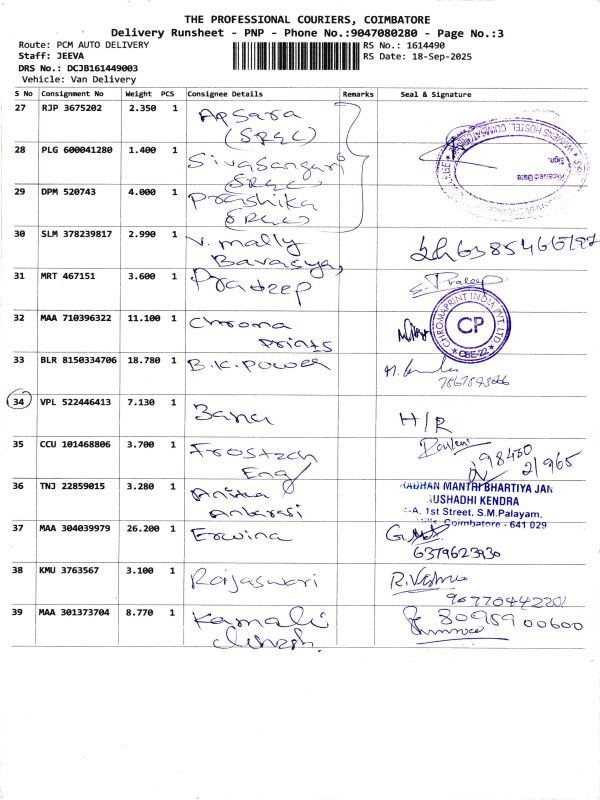 THE PROFESSIONAL COURIERS, COIMBATORE
Delivery Runsheet - PNP - Phone No.:9047080280 - Page No.:3
Route: PCM AUTO DELIVERY
RS No.: 1614490
Staff: JEEVA
RS Date: 18-Sep-2025
DRS No.: DCJB161449003
Vehicle: Van Delivery
S No Consignment No Weight PCS Consignee Details Remarks Seal & Signature
27 RJP 3675202 2.350 1 Apsara
(SRGC)
28 PLG 600041280 1.400 1 Sivasangari
SRGC
29 DPM 520743 4.000 1 Prashika
SRGC
Received Date
Sign.
30 SLM 378239817 2.990 1 V. mally
31 MRT 467151 3.600 1 Pradeep E. Pradeep
32 MAA 710396322 11.100 1 Chroma
Prints
CHROMAPRINT INDIA PVT. LTD
CP
CBE-22
33 BLR 8150334706 18.780 1 B.K. Power
34 VPL 522446413 7.130 1 Banu H/R
35 CCU 101468806 3.700 1
Eng
36 TNJ 22859015 3.280 1
RADHAN MANTRI BHARTIYA JAN
AUSHADHI KENDRA
-A. 1st Street, S.M.Palayam,
Coimbatore - 641 029
37 MAA 304039979 26.200 1 Erwina
6379623930
38 KMU 3763567 3.100 1 Rajaswari
39 MAA 301373704 8.770 1 Kamali
80959 00600